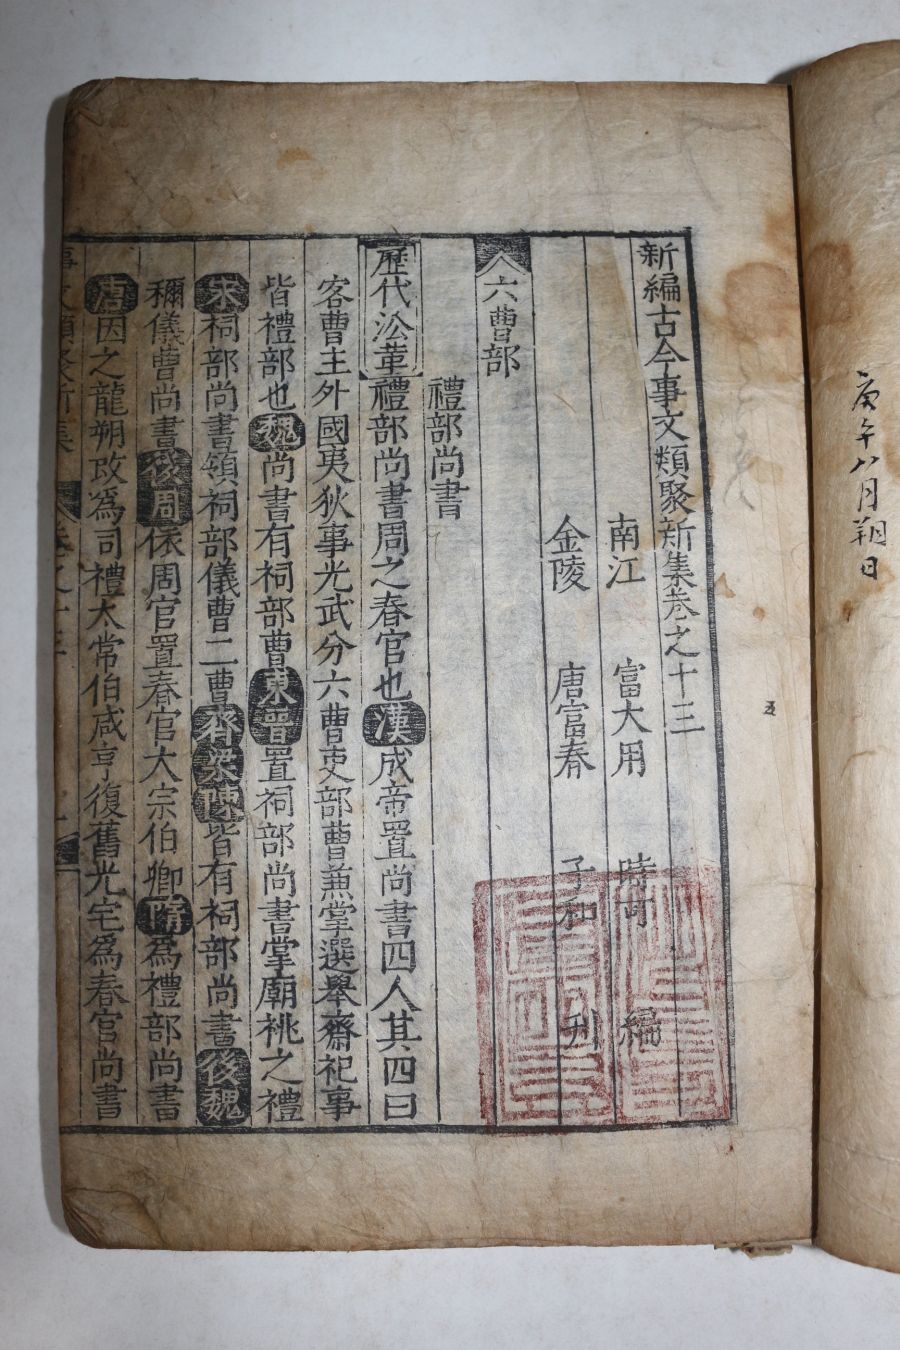 庚午八月朔日
新編古今事文類聚新集卷之十三
南江 富大用 時可 編
金陵 唐富春 子和 刋
六曹部
禮部尚書
歷代沿革禮部尚書周之春官也漢成帝置尚書四人其四曰
客曹主外國夷狄事光武分六曹吏部曹兼掌選舉齋祀事
皆禮部也魏尚書有祠部曹東晉置祠部尚書掌廟祧之禮
宋祠部尚書領祠部儀曹二曹齊梁陳皆有祠部尚書後魏
稱儀曹尚書後周依周官置春官大宗伯卿隋為禮部尚書
唐因之龍朔改為司禮太常伯咸亨復舊光宅為春官尚書